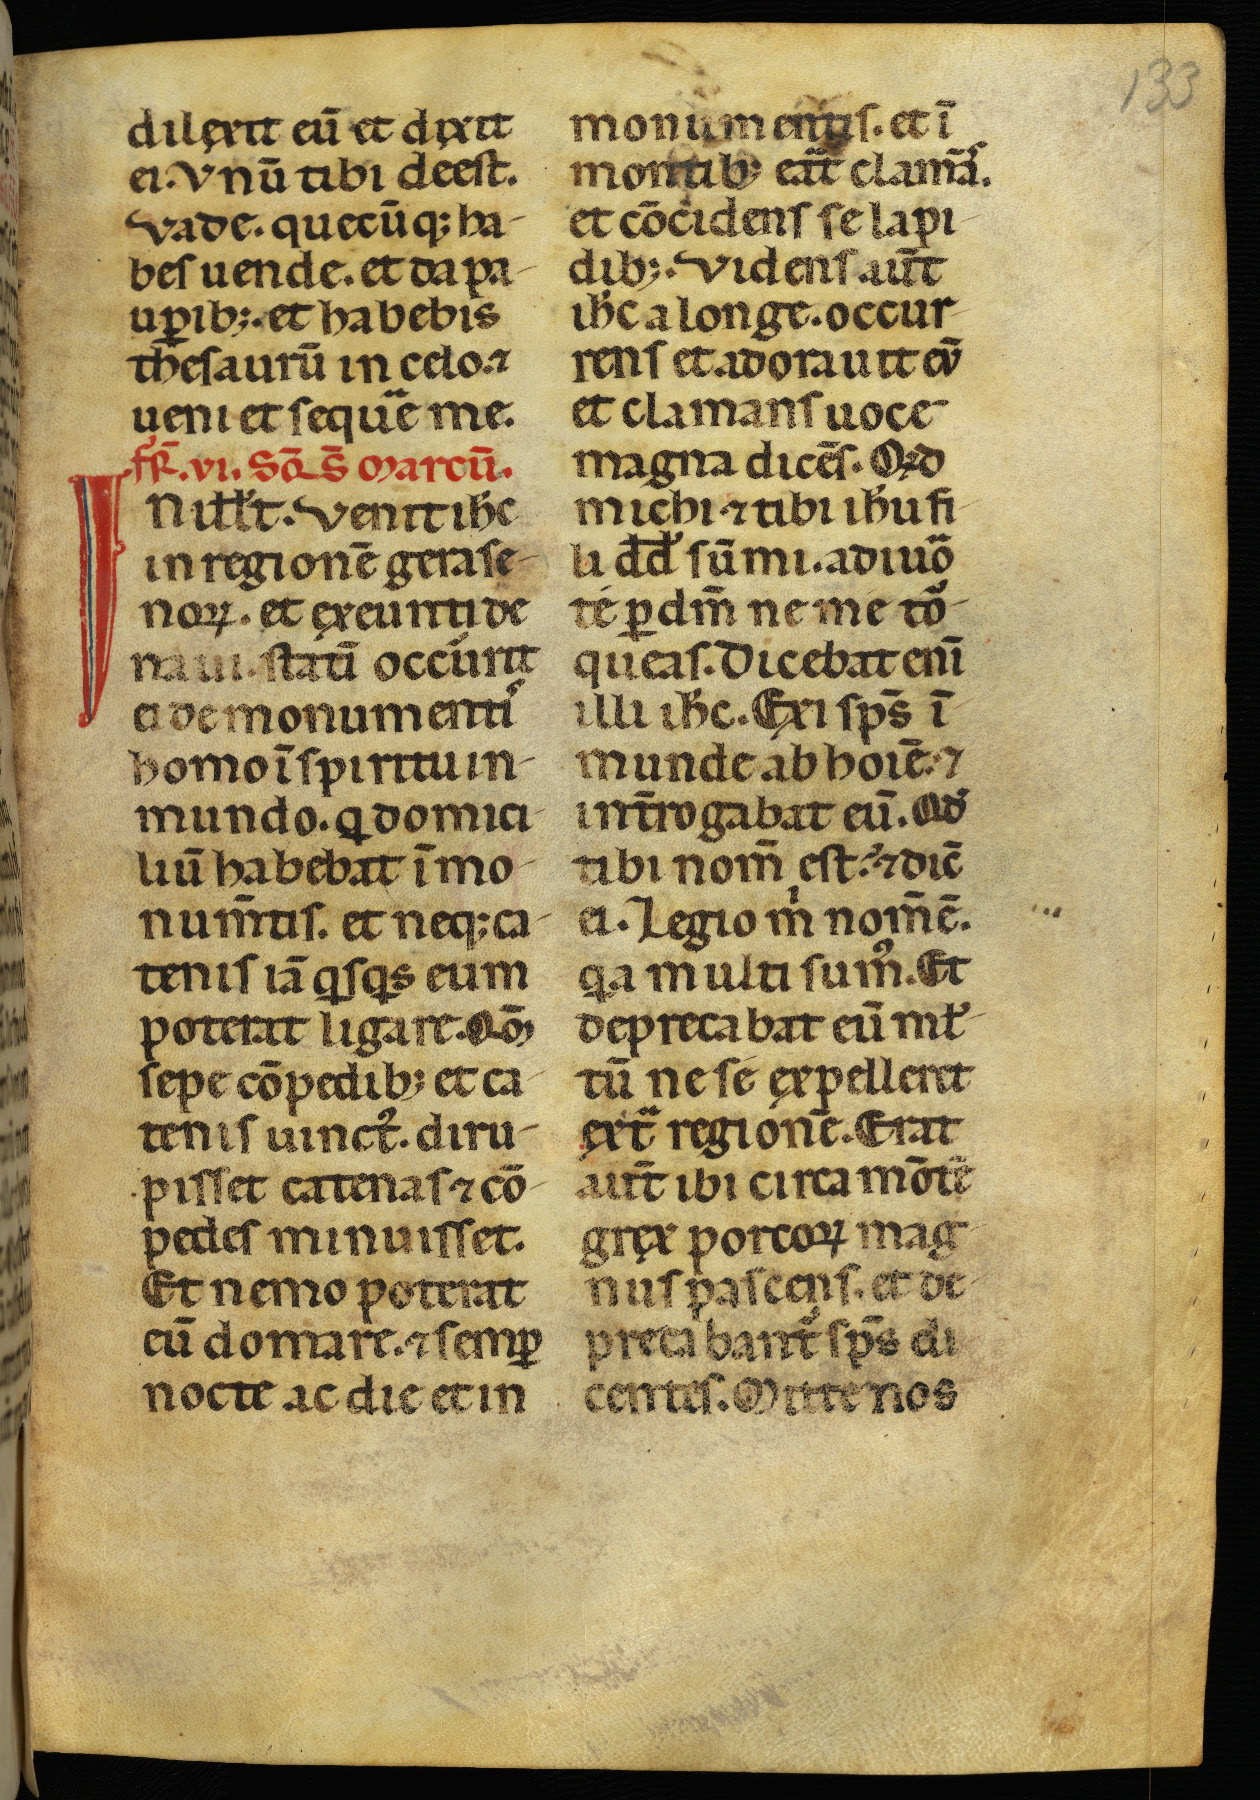 133
dilexit eū et dixit
ei. Vnū tibi deest.
Vade. quecūq; ha-
bes uende. et da pa-
uꝑib;. et habebis
thesaurū in celo. ⁊
ueni et seqūe me.
fr̄. vi. Sc̄d S̄ Marcū.
IN ill̄t. Venit ihc̄
in regionē gerase-
noꝝ. et exeunti de
naui. statī occurit
ei de monumentis
homo ī spiritu in-
mundo. q̇ domici-
liū habebat ī mo-
num̄tis. et neq; ca-
tenis iā q̇sq̇s eum
poterat ligare. Qm̄
sepe cōpedib; et ca-
tenis uinctꝰ. diru-
pisset catenas ⁊ cō-
pedes minuisset.
Et nemo poterat
eū domare. ⁊ semꝑ
nocte ac die et in
monumentis. et ī
montib; eāt clamās.
et cōcidens se lapi-
dib;. Videns aūt
ihc̄ a longe. occur-
rens et adorauit eū
et clamans uoce
magna dicēs. Qd
michi ⁊ tibi ihū fi-
li dd̄ sūmi. adiuō
te ꝑ dm̄ ne me tō-
queas. Dicebat enī
illi ihc̄. Exi sp̄s ī-
munde ab hoīe. ⁊
int̄rogabat eū. Qd
tibi nom̄ est? ⁊ dic̄
ei. Legio m̍ nom̄ ē.
q̇a multi sumꝰ. Et
deprecabat eū ml̄-
tū ne se expelleret
ext̄ regionē. Erat
aūt ibi circa mōtē
grex porcoꝝ mag-
nus pascens. et de-
precabant᷑ sp̄s di-
centes. Mitte nos